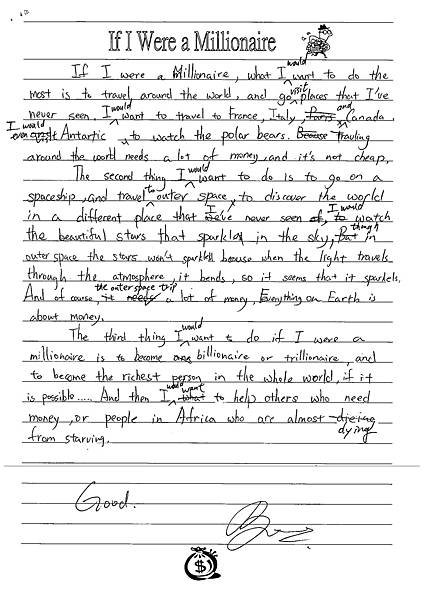 If I Were a Millionaire
would
If I were a Millionaire, what I want to do the
most is to travel around the world, and go visit places that I've
never seen. I would want to travel to France, Italy, Paris and Canada,
I would
even visit Antartic to watch the polar bears. Becouse Trauling
around the world needs a lot of money, and it's not cheap.
The second thing I would want to do is to go on a
spaceship, and travel to outer space, to discover the world
in a different place that I've never seen of, I would to watch
the beautiful stars that sparkled in the sky, But in though
outer space the stars won't sparkell becouse when the light travels
through the atmosphere, it bends, so it seems that it sparkels.
And of cause, it needs the outer space trip a lot of money, Everything on Earth is
about money.
The third thing I would want to do if I were a
millionaire is to become billionaire or trillionaire, and
to become the richest person in the whole world, if it
is possible..... And then I would want what to help others who need
money, or people in Africa who are almost djeing
dying
from starving.
Good.
$